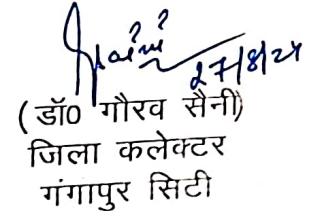 27/8/24
(डॉ0 गौरव सैनी)
जिला कलेक्टर
गंगापुर सिटी